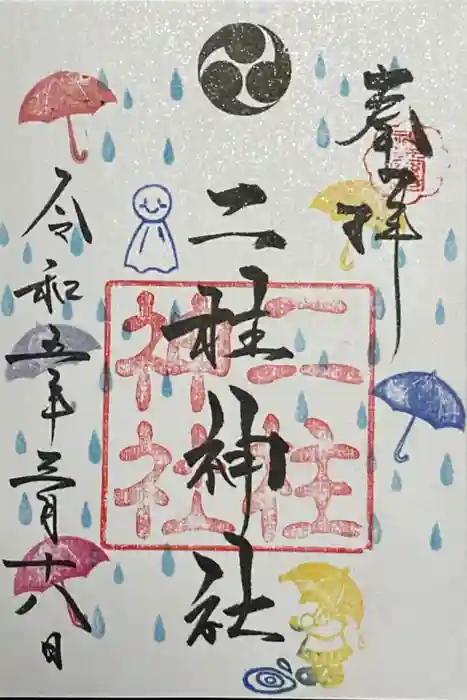 奉拝
二柱神社
二柱
神社
令和五年三月十八日